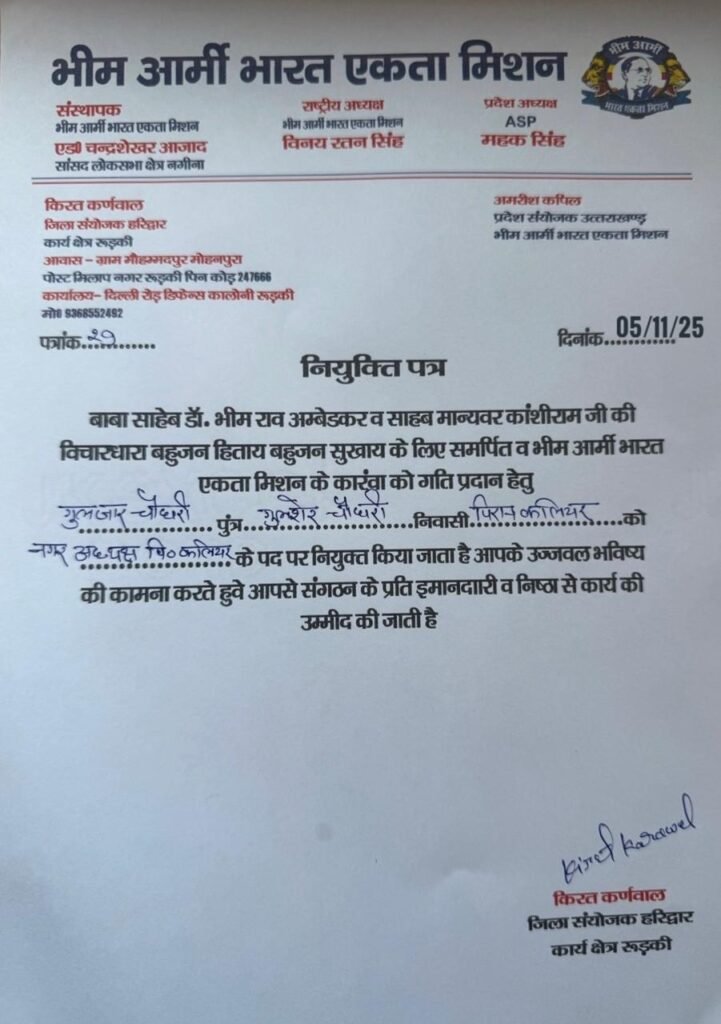 भीम आर्मी भारत एकता मिशन
भीम आर्मी
भारत एकता मिशन
संस्थापक
भीम आर्मी भारत एकता मिशन
एड0 चन्द्रशेखर आजाद
सांसद लोकसभा क्षेत्र नगीना
राष्ट्रीय अध्यक्ष
भीम आर्मी भारत एकता मिशन
विनय रतन सिंह
प्रदेश अध्यक्ष
ASP
महक सिंह
किरत कर्णवाल
जिला संयोजक हरिद्वार
कार्य क्षेत्र रूड़की
आवास – ग्राम मौहम्मदपुर मोहनपुरा
पोस्ट मिलाप नगर रूड़की पिन कोड़ 247666
कार्यालय– दिल्ली रोड़ डिफेन्स कालोनी रूड़की
मो0 9368552492
अमरीश कपिल
प्रदेश संयोजक उत्तराखण्ड़
भीम आर्मी भारत एकता मिशन
पत्रांक..२9..........
दिनांक....05/11/25
नियुक्ति पत्र
बाबा साहेब डॉ. भीम राव अम्बेडकर व साहब मान्यवर कांशीराम जी की
विचारधारा बहुजन हिताय बहुजन सुखाय के लिए समर्पित व भीम आर्मी भारत
एकता मिशन के कारंवा को गति प्रदान हेतु
गुलजार चौधरी पुंत्र गुलशेर चौधरी निवासी पिरान कलियर को
नगर अध्यक्ष पि० कलियर के पद पर नियुक्त किया जाता है आपके उज्जवल भविष्य
की कामना करते हुवे आपसे संगठन के प्रति इमानदाारी व निष्ठा से कार्य की
उम्मीद की जाती है
Kiret Karawel
किरत कर्णवाल
जिला संयोजक हरिद्वार
कार्य क्षेत्र रूड़की